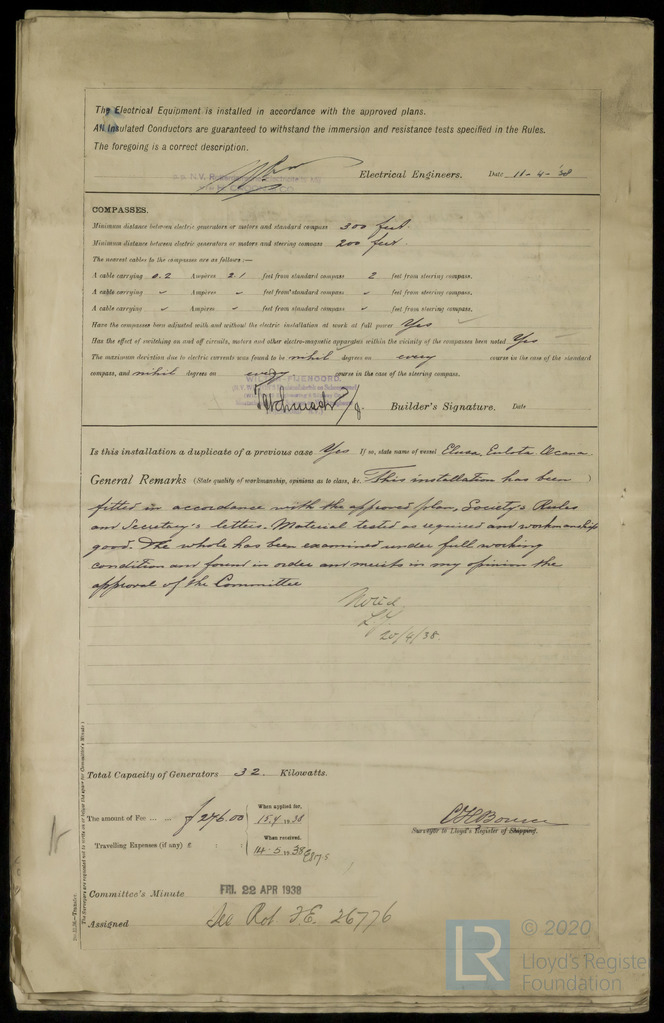 The Electrical Equipment is installed in accordance with the approved plans.
All Insulated Conductors are guaranteed to withstand the immersion and resistance tests specified in the Rules.
The foregoing is a correct description.
Electrical Engineers. Date 11-4-'38
COMPASSES.
Minimum distance between electric generators or motors and standard compass 300 feet.
Minimum distance between electric generators or motors and steering compass 200 feet.
The nearest cables to the compasses are as follows:—
A cable carrying 0.2 Ampères 2.1 feet from standard compass 2 feet from steering compass.
A cable carrying Ampères feet from standard compass feet from steering compass.
A cable carrying Ampères feet from standard compass feet from steering compass.
Have the compasses been adjusted with and without the electric installation at work at full power Yes
Has the effect of switching on and off circuits, motors and other electro-magnetic apparatus within the vicinity of the compasses been noted Yes
The maximum deviation due to electric currents was found to be nihil degrees on every course in the case of the standard
compass, and nihil degrees on every course in the case of the steering compass.
Builder's Signature. Date
Is this installation a duplicate of a previous case Yes If so, state name of vessel Elusa, Eulota, Ocana
General Remarks (State quality of workmanship, opinions as to class, &c. This installation has been )
fitted in accordance with the approved plan, Society's Rules
and Secretary's letters. Material tested as required and workmanship
good. The whole has been examined under full working
condition and found in order and merits in my opinion the
approval of the Committee
Noted
20/4/38.
Total Capacity of Generators 32. Kilowatts.
The amount of Fee ... ... f 276.00
When applied for,
15.4.1938
Travelling Expenses (if any) £
When received.
14.5.1938
Surveyor to Lloyd's Register of Shipping.
Committee's Minute FRI. 22 APR 1938
Assigned See Rot F.E. 26776
The Surveyors are requested not to write on or below the space for Committee's Minute.
LR
© 2020
Lloyd's Register
Foundation